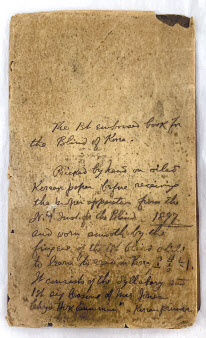 The 1st embossed book for
the Blind of Korea.
Pricked by hand on oiled
Korean paper before receiving
the apparatus from the
N.Y. Inst. for the Blind 1897
and worn smooth by the
fingers of the 1st blind
to learn to read in Korea
It consists of the Syllabary and
1st six lessons of Mrs. Jones
Korean primer